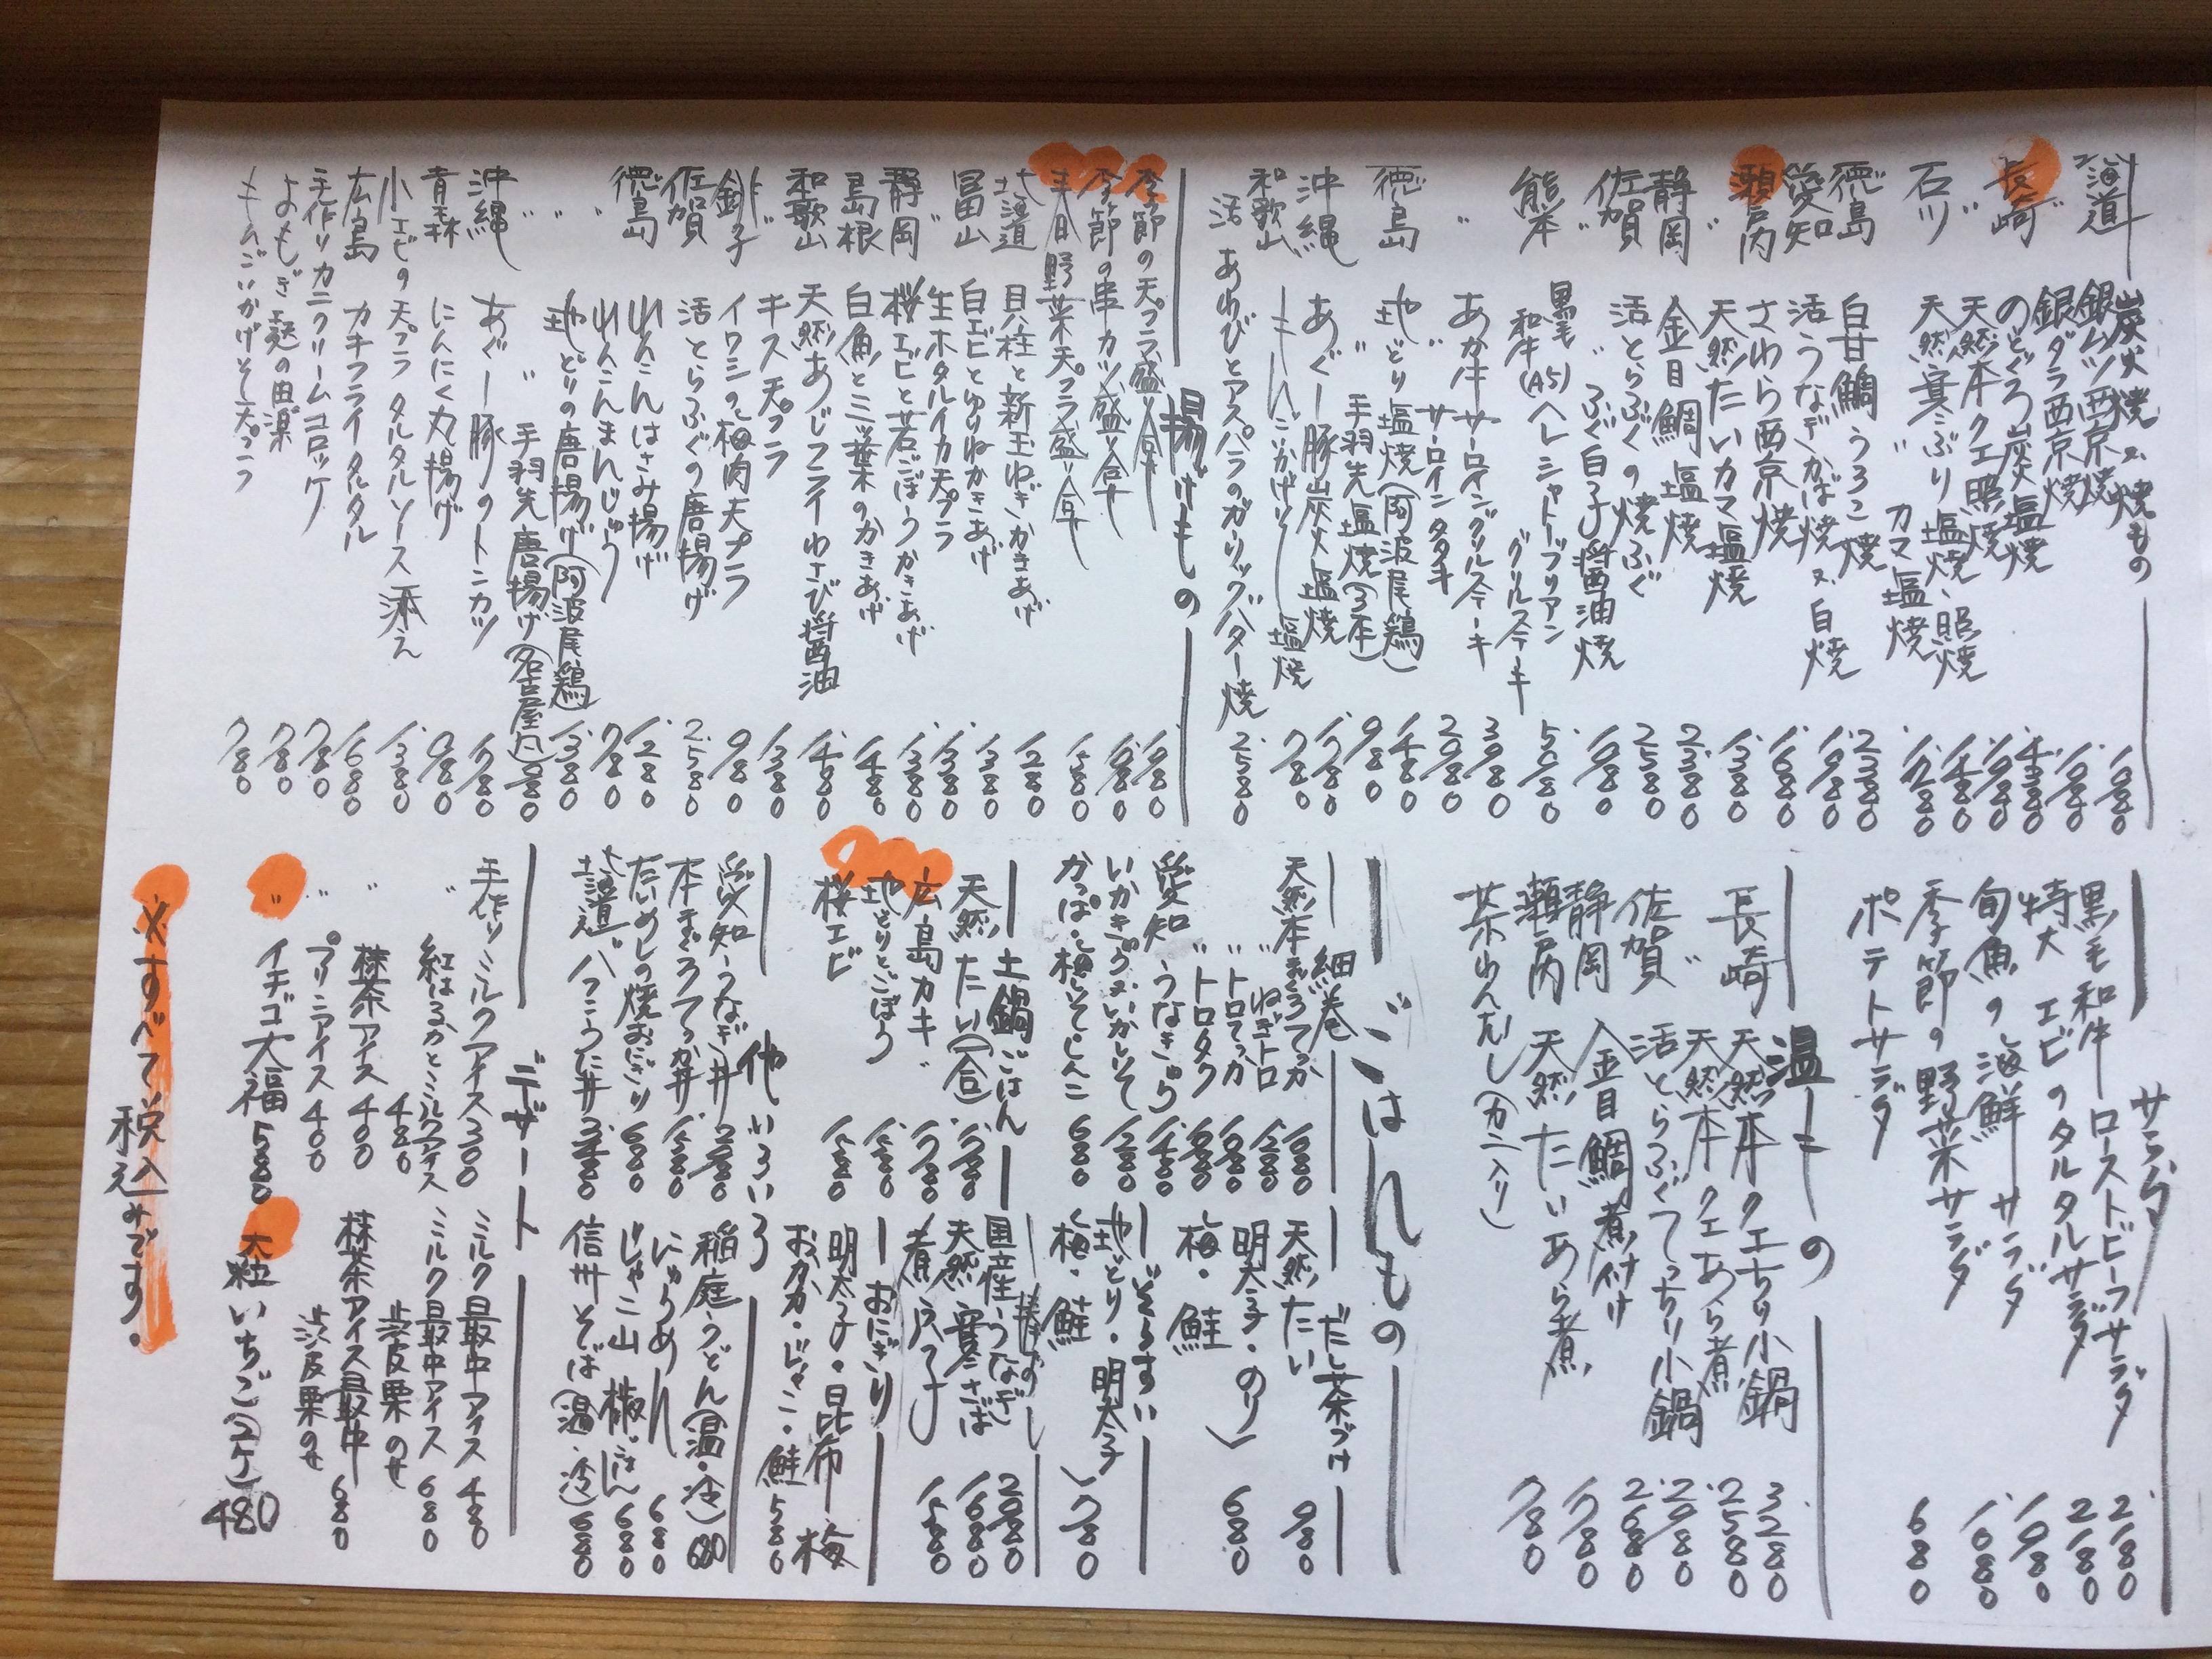 炭火焼又焼もの
北海道 銀ムツ西京焼 1,980
〃 銀ダラ西京焼 1,980
長崎 のどぐろ炭塩焼 4,380
〃 天然本クエ照焼 1,980
石川 天然寒ぶり塩焼・照焼 1,480
〃 カマ塩焼 1,280
徳島 白甘鯛うろこ焼 2,380
愛知 活うなぎかば焼又白焼 1,980
瀬戸内 さわら西京焼 1,680
〃 天然たいカマ塩焼 1,380
静岡 金目鯛塩焼 2,380
佐賀 活とらふぐの焼ふぐ 2,580
〃 〃 ふぐ白子醤油焼 1,980
熊本 黒毛和牛(A5)ヘレシャトーブリアングリルステーキ 5,980
〃 あか牛サーロイングリルステーキ 3,980
〃 サーロインタタキ 2,980
徳島 地どり塩焼(阿波尾鶏) 1,480
〃 手羽先塩焼(3本) 980
沖縄 あぐー豚炭火塩焼 1,780
和歌山 しいたけ塩焼 780
活あわびとアスパラのガーリックバター焼 2,580
揚げもの
季節の天プラ盛り合せ 1,980
季節の串カツ盛り合せ 1,980
春野菜天プラ盛り合せ 1,580
北海道 貝柱と新玉ねぎかきあげ 1,280
富山 白エビとゆりねかきあげ 1,380
〃 生ホタルイカ天プラ 1,380
静岡 桜エビと若ごぼうかきあげ 1,380
島根 白魚と三ッ葉のかきあげ 1,480
和歌山 天然あじフライわさび醤油 1,480
〃 キス天プラ 1,380
銚子 イワシの梅肉天プラ 980
佐賀 活とらふぐの唐揚げ 2,580
徳島 れんこんはさみ揚げ 1,280
〃 れんこんまんじゅう 780
〃 地どりの唐揚げ(阿波尾鶏) 1,380
〃 〃 手羽先唐揚げ(名古屋風) 980
沖縄 あぐー豚のトンカツ 1,780
青森 にんにく丸揚げ 980
小エビの天プラ タルタルソース添え 1,380
広島 カキフライタルタル 1,680
手作りカニクリームコロッケ 780
よもぎ麩の田楽 780
サラダ
黒毛和牛ローストビーフサラダ 2,180
特大エビのタルタルサラダ 2,180
旬魚の海鮮サラダ 1,980
季節の野菜サラダ 1,080
ポテトサラダ 680
温もの
長崎 天然本クエちり小鍋 3,280
〃 天然本クエあら煮 2,580
佐賀 活とらふぐてっちり小鍋 2,980
静岡 金目鯛煮付け 2,680
瀬戸内 天然たいあら煮 1,780
茶わんむし(カニ入り) 780
ごはんもの
細巻
天然本まぐろてっか 1,680
〃 ねぎトロ 1,280
〃 トロてっか 1,680
〃 トロタク 1,680
愛知 うなきゅう 1,480
いかきゅう又いかしそ 1,280
かっぱ・梅しそ・しんこ 680
だし茶づけ
天然たい 980
明太子・のり
梅・鮭 680
ぞうすい
地どり・明太子
梅・鮭 780
土鍋ごはん
天然たい(一合) 1,780
広島カキ〃 1,780
地どりとごぼう 1,580
桜エビ 1,580
棒ずし
国産うなぎ 2,980
天然寒さば 1,680
煮穴子 1,580
おにぎり
明太子・昆布・梅
おかか・じゃこ・鮭 580
他いろいろ
愛知うなぎ丼 2,980
本まぐろてっか丼 1,580
たいめしの焼おにぎり 680
北海道バフンうに丼 3,480
稲庭うどん(温・冷) 680
にゅうめん 680
じゃこ山椒ごはん 680
信州そば(温・冷) 680
デザート
手作りミルクアイス 300
〃 紅はるかとミルクアイス 480
〃 抹茶アイス 400
〃 プリンアイス 400
〃 イチゴ大福 580
ミルク最中アイス 480
ミルク最中アイス 渋皮栗のせ 680
抹茶アイス最中 渋皮栗のせ 680
大粒いちご(2ケ) 480
※すべて税込み価格です。